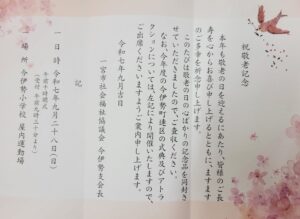 祝敬老記念
本年も敬老の日を迎えるにあたり、皆様のご長
寿を心からお喜び申し上げるとともに、ますます
のご多幸を祈念申し上げます。
このたびは敬老の日の心ばかりの記念品を同封さ
せていただきましたので、ご査収ください。
なお、今年度の今伊勢町連区の式典及びアトラ
クションについては、左記により開催いたしますので、
ご出席くださいますようご案内申し上げます。
令和七年九月吉日
一宮市社会福祉協議会 今伊勢支会長
記
一 日時 令和七年九月二十八日(日)
午前十時開式
(受付 午前九時三十分より)
二 場所 今伊勢小学校 屋内運動場